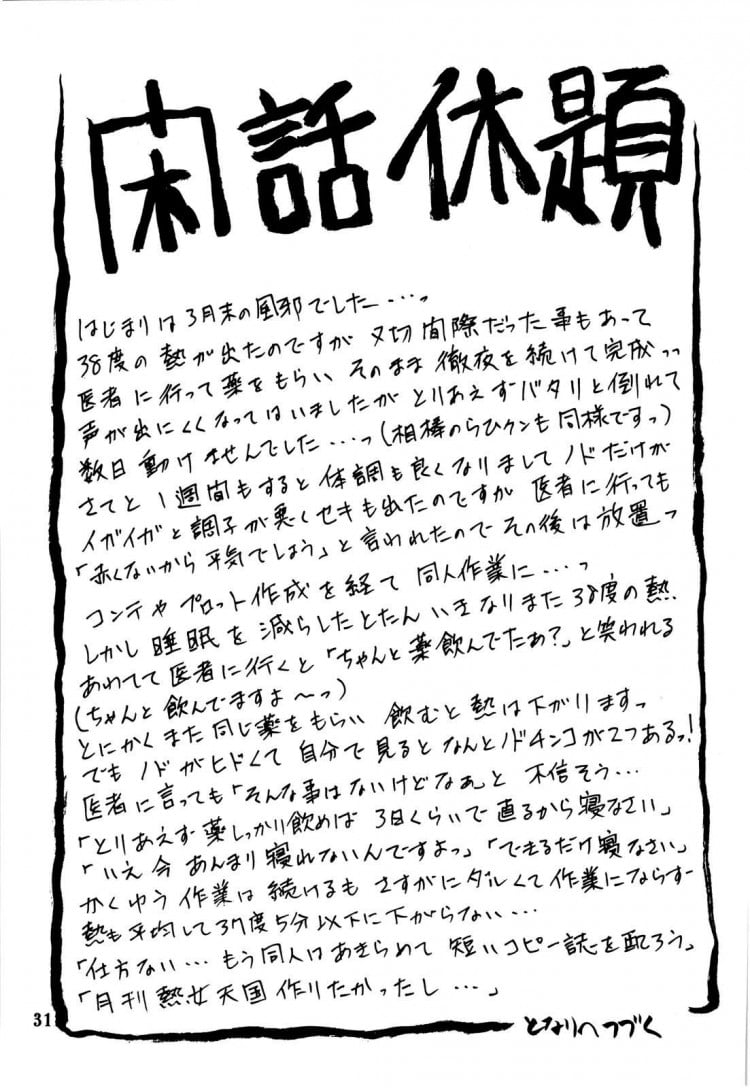 閑話休題
はじまりは3月末の風邪でした…っ
38度の熱が出たのですが 〆切間際だった事もあって
医者に行って薬をもらい そのまま徹夜を続けて完成っっ
声が出にくくなってはいましたが とりあえずバタリと倒れて
数日動けませんでした…っ(相棒のらひクンも同様ですっ)
さてと 1週間もすると体調も良くなりまして ノドだけが
イガイガと調子が悪くセキも出たのですが 医者に行っても
「赤くないから平気でしょう」と言われたので その後は放置っ
コンテや プロット作成を経て 同人作業に…っ
しかし睡眠を減らしたとたん いきなりまた38度の熱
あわてて医者に行くと「ちゃんと薬飲んでたあ?」と笑われる
(ちゃんと飲んでますよ〜っ)
とにかくまた同じ薬をもらい 飲むと熱は下がりますっ
でも ノドがヒドくて 自分で見ると なんとノドチンコが2つあるっ!
医者に言っても「そんな事はないけどなぁ」と 不信そう…
「とりあえず薬しっかり飲めば 3日くらいで直るから寝なさい」
「いえ今 あんまり寝れないんですよっ」「できるだけ寝なさい」
かくゆう作業は続けるも さすがにダルくて作業にならず
熱も平均して37度5分以下に下がらない…
「仕方ない…もう同人はあきらめて 短いコピー誌を配ろう」
「月刊熱女天国作りたかったし…」
となりへつづく
31